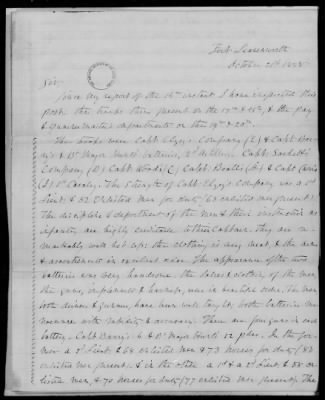 Fort Leavenworth
October 21st 1858
Sir,
Since my report of the 16th instant I have inspected this
post, the troops then present on the 17th & 18th, & the pay
& quartermasters departments on the 19th & 20th.
The troops were Capt Company (E) & Capt
& Bt Major batteries, 2d Artillery, Capt
Company (D) Capt Woods (C) Capt Beall's & Capt
1st Cavalry. The strength of Capt Company was a 1st
Lieut & 52 enlisted men for duty (63 enlisted men present).
The discipline & deportment of the men & their instruction as
infantry are highly creditable to their Captain. They are re-
markably well set up: their clothing is very neat, & the arms
& accoutrements in excellent order. The appearance of the two
batteries was very handsome. The horses & clothing of the men
the guns, implements & harness, were in order. The men
both drivers & gunners have been well taught, both batteries ma-
noeuvre with rapidity & accuracy. There are four guns in each
battery - Capt Barry's 6 & Bt Major 12 pdrs. In the for-
mer a 2d Lieut & 68 enlisted men & 73 horses for duty (82
enlisted men present) & in the a 1st & a 2d Lieut & 58 en-
listed men, & 70 horses for duty (77 enlisted men present). The